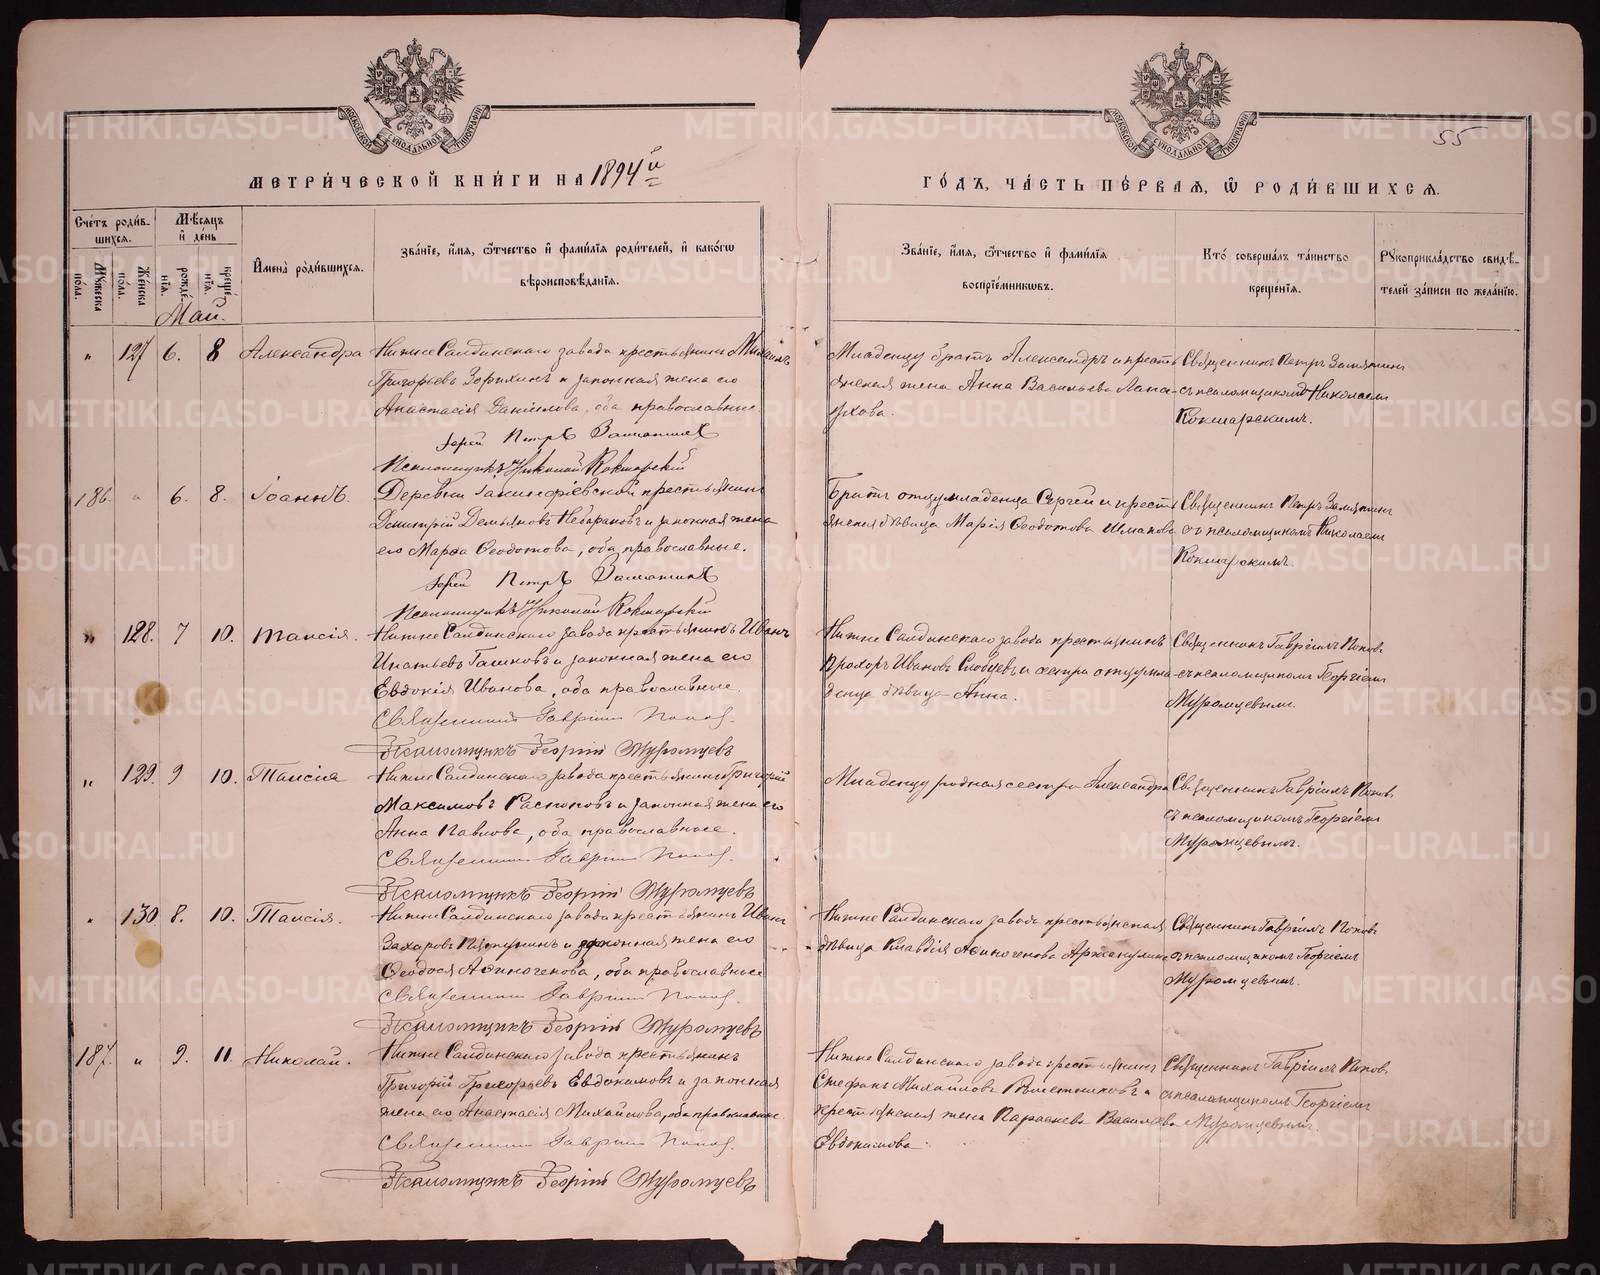 МОСКОВСКОЙ СѴНОДАЛЬНОЙ ТИПОГРАФІИ
МОСКОВСКОЙ СѴНОДАЛЬНОЙ ТИПОГРАФІИ
55
МЕТРИ́ЧЕСКОЙ КНИ́ГИ НА 1894й
ГО́ДЪ, ЧА́СТЬ ПЕ́РВАЯ, Ѿ РОДИ́ВШИХСЯ.
Сче́тъ роди́в-
шихся.
Мꙋжеска пола.
Же́нска пола.
Мѣ́сяцъ
и҆ де́нь
рожде́нїя.
креще́нїя.
И҆мена̀ роди́вшихся.
Зва́нїе, и҆́мя, ѻ҆́тчество и҆ фами́лїя роди́телей, и҆ како́гѡ
вѣроисповѣ́данїя.
Зва́нїе, и҆́мя, ѻ҆́тчество и҆ фами́лїя
воспрїе́мникѡвъ.
Кто̀ соверша́лъ та́инство
креще́нїя.
Рꙋкоприкла́дство свидѣ́-
телей за́писи по жела́нїю.
Май.
" 127 6. 8 Александра
Нижне Салдинскаго завода крестьянинъ Михаилъ
Григорьевъ Зорихинъ и законная жена его
Анастасія Данилова, оба православные.
Іерей Петръ Замятинъ
Псаломщикъ Николай Кокшарскій
Младенцу братъ Александръ и кресть-
янская жена Анна Васильева
Священникъ Петръ Замятинъ
съ псаломщикомъ Николаемъ
Кокшарскимъ.
186. " 6. 8. Іоаннъ.
Деревни Іакинфіевской крестьянинъ
Димитрій Демьяновъ и законная жена
его Марѳа Ѳеодотова, оба православные.
Іерей Петръ Замятинъ
Псаломщикъ Николай Кокшарскій
Братъ отцу младенца Сергей и кресть-
янская дѣвица Марія Ѳеодотова Шмакова
Священникъ Петръ Замятинъ
съ псаломщикомъ Николаемъ
Кокшарскимъ.
" 128. 7 10. Таисія.
Нижне Салдинскаго завода крестьянинъ Иванъ
Игнатьевъ и законная жена его
Евдокія Иванова, оба православные.
Священникъ Гавріилъ Поповъ.
Псаломщикъ Георгій Муромцевъ
Нижне Салдинскаго завода крестьянинъ
Прохоръ Ивановъ и сестра отцу мла-
денца дѣвица Анна.
Священникъ Гавріилъ Поповъ
съ псаломщикомъ Георгіемъ
Муромцевымъ.
" 129. 9 10. Таисія
Нижне Салдинскаго завода крестьянинъ Григорій
Максимовъ Распоповъ и законная жена его
Анна Павлова, оба православные.
Священникъ Гавріилъ Поповъ.
Псаломщикъ Георгій Муромцевъ
Младенцу родная сестра Александра
Священникъ Гавріилъ Поповъ
съ псаломщикомъ Георгіемъ
Муромцевымъ.
" 130 8. 10. Таисія.
Нижне Салдинскаго завода крестьянинъ Иванъ
Захаровъ и законная жена его
Ѳеодосія Аѳиногенова, оба православные
Священникъ Гавріилъ Поповъ.
Псаломщикъ Георгій Муромцевъ
Нижне Салдинскаго завода крестьянская
дѣвица Клавдія Аѳиногенова
Священникъ Гавріилъ Поповъ
съ псаломщикомъ Георгіемъ
Муромцевымъ.
187. " 9. 11. Николай.
Нижне Салдинскаго завода крестьянинъ
Григорій Григорьевъ Евдокимовъ и законная
жена его Анастасія Михайлова, оба православные.
Священникъ Гавріилъ Поповъ.
Псаломщикъ Георгій Муромцевъ
Нижне Салдинскаго завода крестьянинъ
Стефанъ Михайловъ и
крестьянская жена Параскева Васильева
Евдокимова.
Священникъ Гавріилъ Поповъ
съ псаломщикомъ Георгіемъ
Муромцевымъ.
METRIKI.GASO-URAL.RU